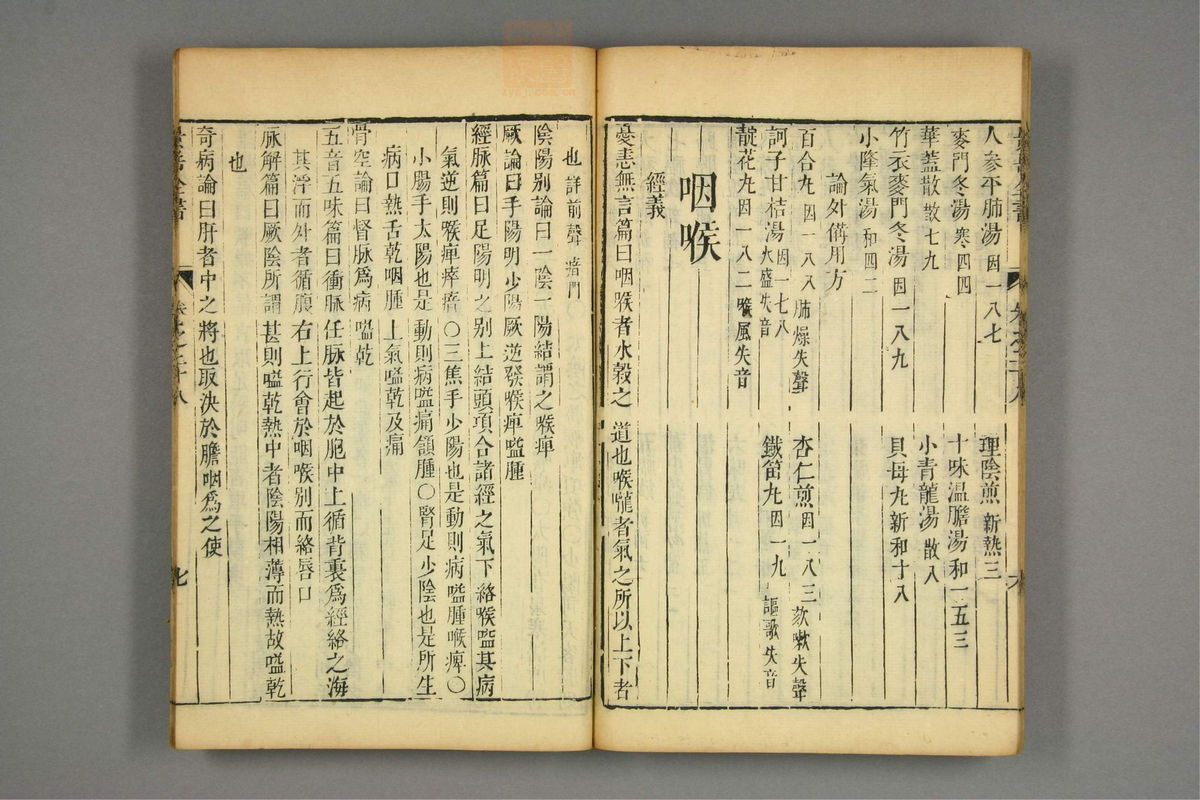 人參平肺湯因一八七　理陰煎新熱三
麥門冬湯寒四四　十味温膽湯和一五三
華蓋散散七九　小青龍湯散八
竹衣麥門冬湯因一八九　貝母丸新和十八
小降氣湯和四二
論外備用方
百合丸因一八八肺燥失聲　杏仁煎因一八三欬嗽失聲
訶子甘桔湯因一七八火盛失音　鐵笛丸因一九謳歌失音
靛花丸因一八二喉風失音
咽喉
經義
憂恚無言篇曰咽喉者水穀之道也喉嚨者氣之所以上下者
也詳前聲瘖門
陰陽别論曰一陰一陽結謂之喉痺
厥論曰手陽明少陽厥逆發喉痺嗌腫
經脉篇曰足陽明之别上結頭項合諸經之氣下絡喉嗌其病
氣逆則喉痺瘁瘖〇三焦手少陽也是動則病嗌腫喉痺〇
小腸手太陽也是動則病嗌痛頷腫〇腎足少陰也是所生
病口熱舌乾咽腫上氣嗌乾及痛
骨空論曰督脉爲病嗌乾
五音五味篇曰衝脉任脉皆起於胞中上循背裏爲經絡之海
其浮而外者循腹右上行會於咽喉别而絡唇口
脉解篇曰厥陰所謂甚則嗌乾熱中者陰陽相薄而熱故嗌乾
也
奇病論曰肝者中之將也取决於膽咽爲之使
七